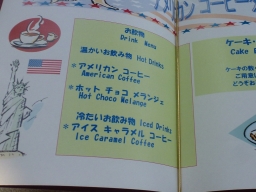 お飲物
Drink Menu
温かいお飲み物 Hot Drinks
*アメリカン コーヒー
American Coffee
*ホット チョコ メランジェ
Hot Choco Melange
冷たいお飲み物 Iced Drinks
*アイス キャラメル コーヒー
Ice Caramel Coffee
メリカン コーヒー
ケーキ
Cake